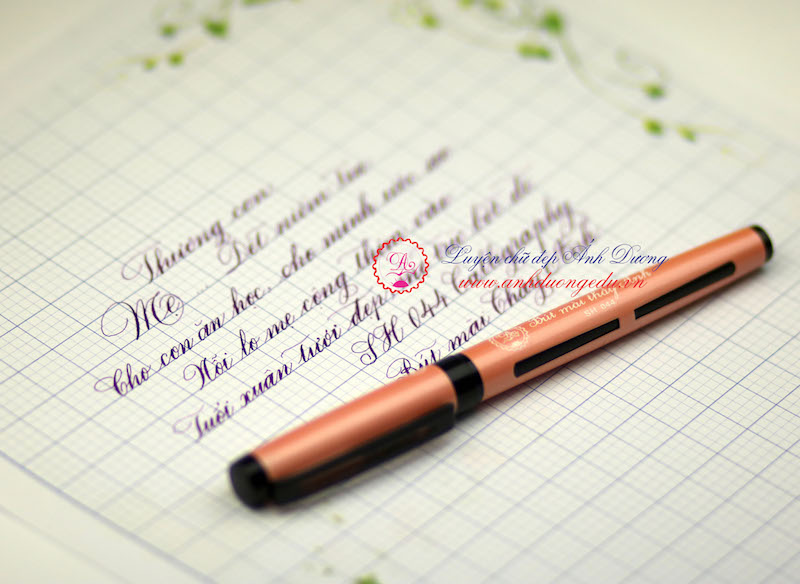 Thương con
Mẹ... Dệt niềm tin
Cho con ăn học, cho mình ước ao
Nỗi lo mẹ cõng trên cao
Tuổi xuân tươi đẹp
SH 044 Calligraphy
Bút mài
Luyện chữ đẹp Ánh Dương
www.anhduongedu.vn
Bút mài thầy Ánh
SH 044